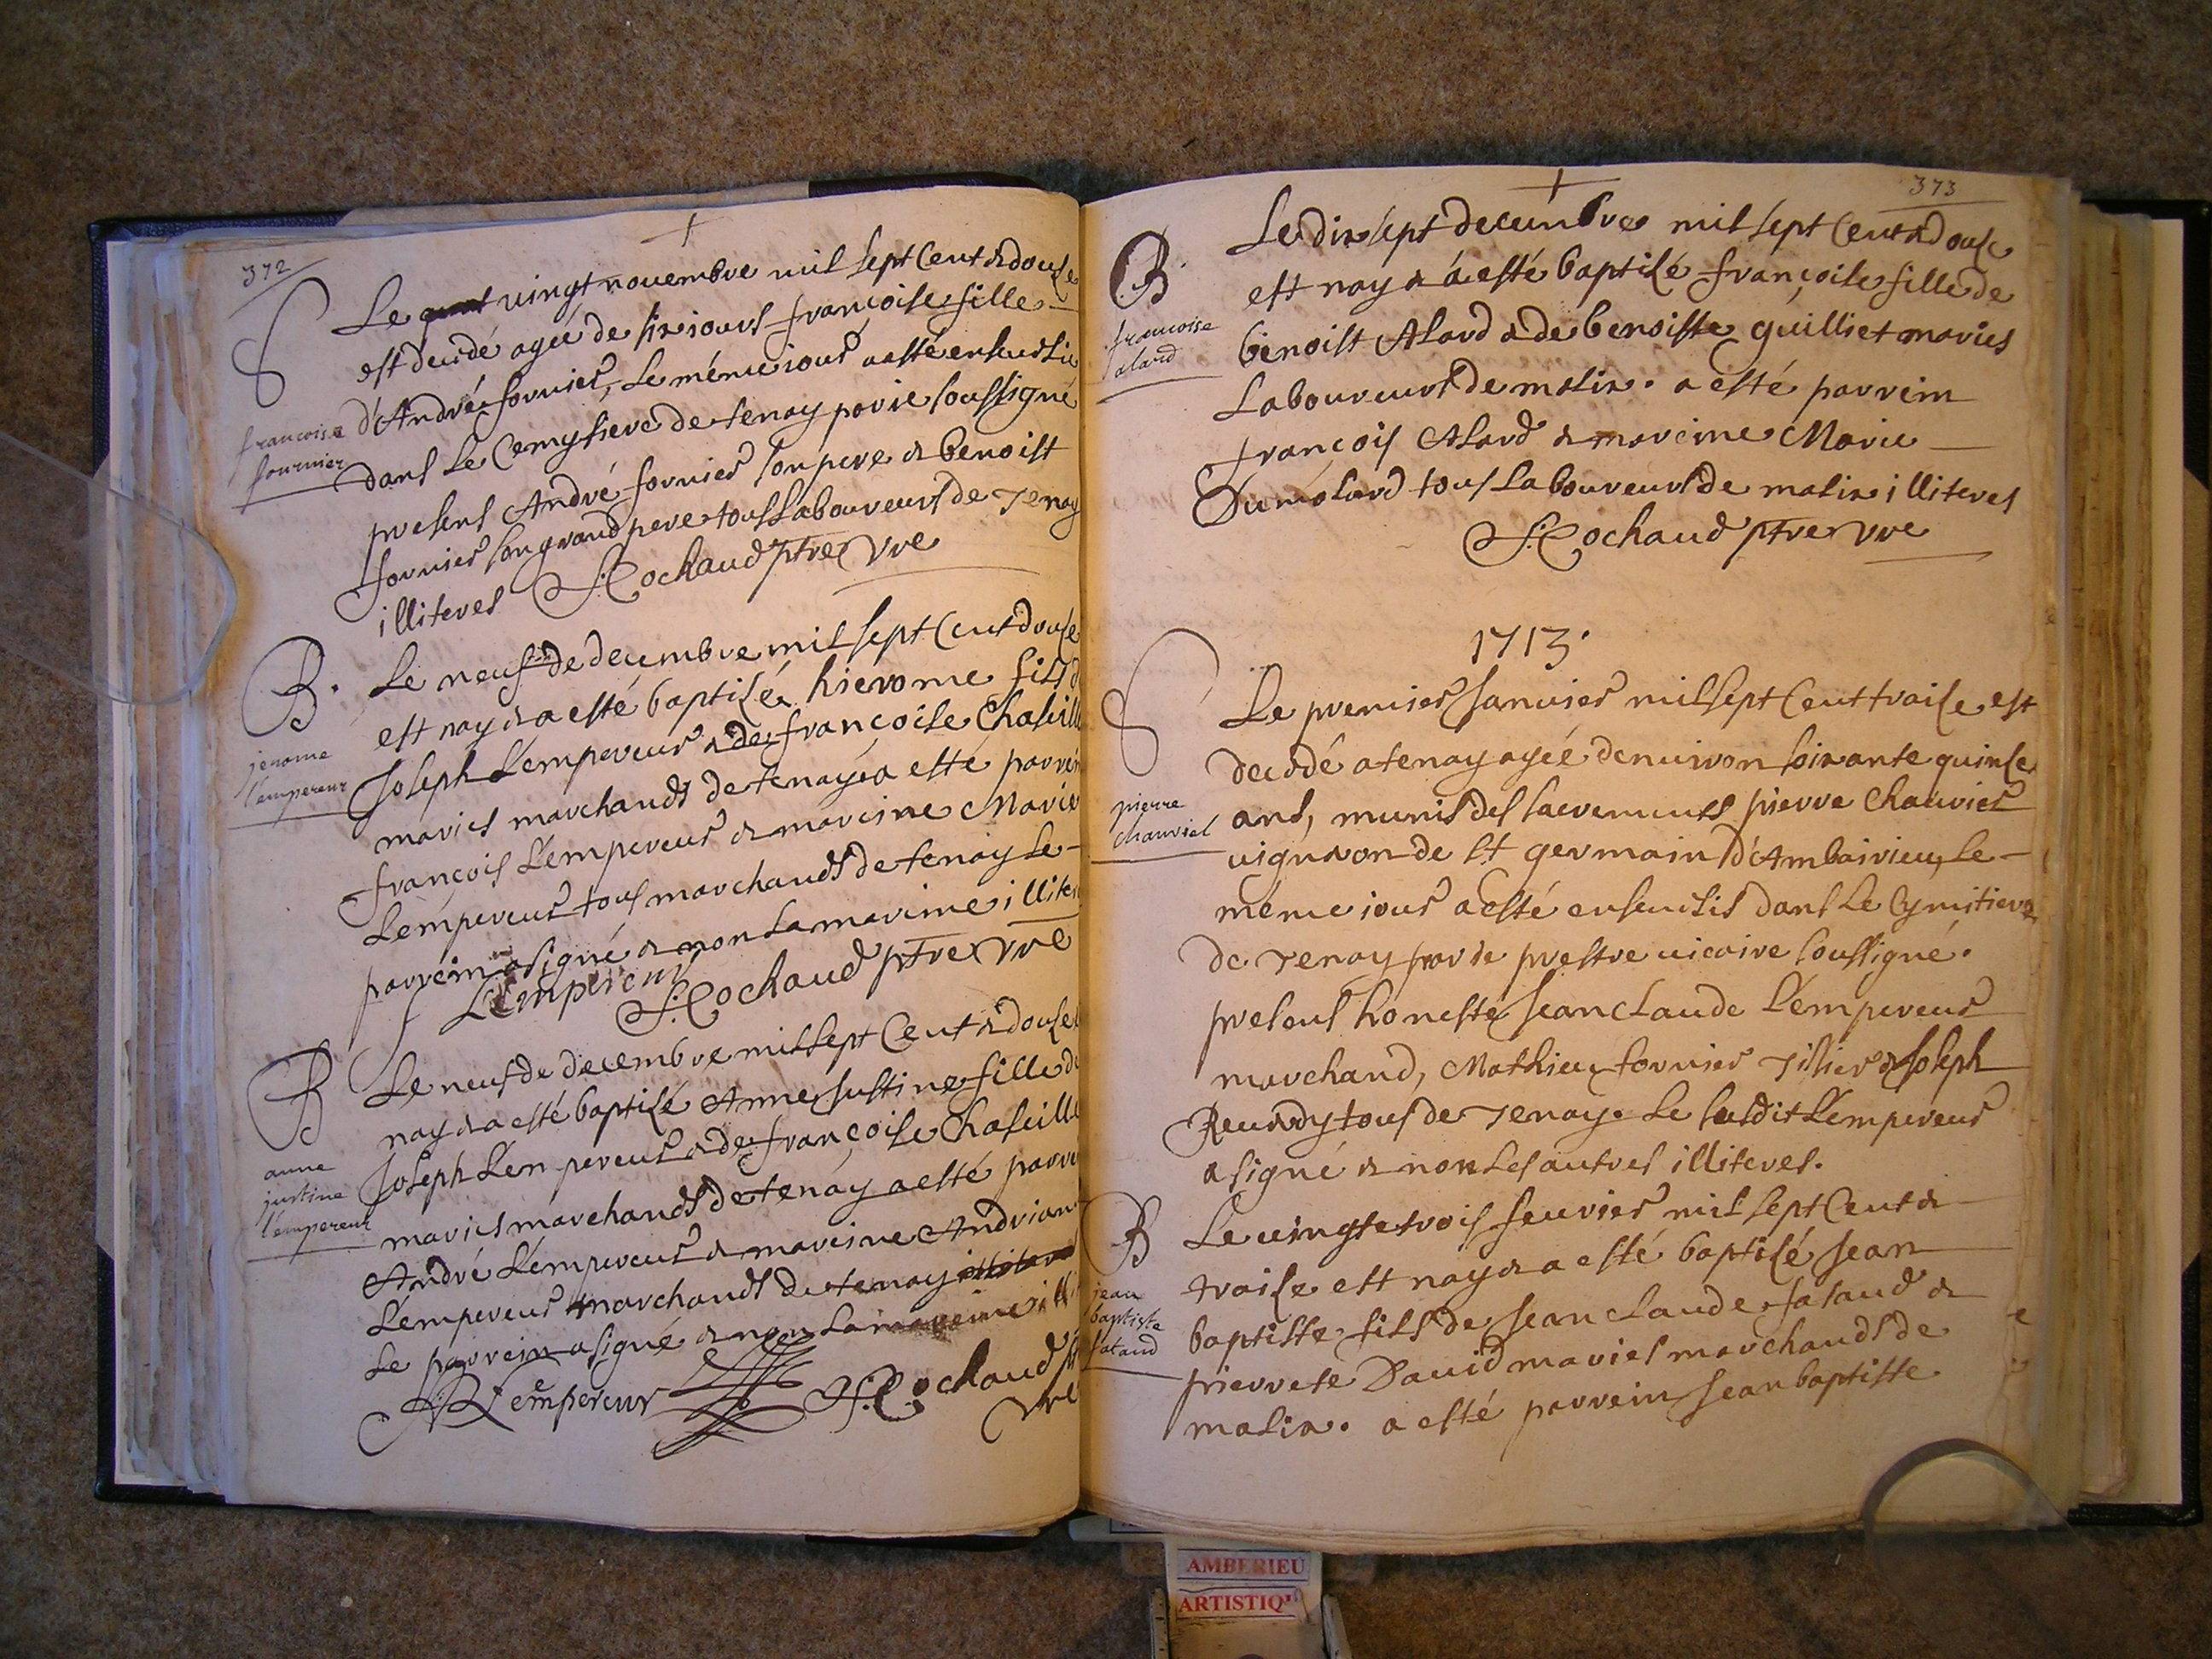 372
Le vingt novembre mil sept Cent & douse
est decedé agée de six iours françoise fille
d'André fornier, Le méme iour a esté ensevelie
dans Le Cemytiere de tenay par ie soussigné
presens André fornier son pere & benoist
fornier son grand pere tous Laboureurs de Tenay
illiteres J: Cochaud ptre vre
francoise
fournier
B.
Le neuf de decembre mil sept Cent douse
est nay & a esté baptisé hierome fils d
Joseph L'empereur & de françoise Chaseill
mariés marchands de tenay a esté parrein
françois L'empereur & mareine Marie
L'empereur tous marchands de tenay Le
parrein a signé & non La mareine illiter
L'empereur
J: Cochaud ptre vre
jerome
l'empereur
B
Le neuf de decembre mil sept Cent & douse
nay & a esté baptisé Anne Justine fille de
Joseph L'empereur & de françoise Chaseille
mariés marchands de tenay a esté parre
André L'empereur & mareine Andriane
L'empereur marchands de tenay illiteres
Le parrein a signé & non La mareine illi
A: L'empereur J: Cochaud pt
vre
anne
justine
l'empereur
373
B
Le dix sept decembre mil sept Cent & douse
est nay & a esté baptisé françoise fille de
benoist Alard & de benoiste guilliet mariés
Laboureurs de malix. a esté parrein
françois Alard & mareine Marie
Dumolard tous Laboureurs de malix illiteres
J: Cochaud ptre vre
francoise
alard
1713.
Le premier Janvier mil sept Cent traise est
decedé a tenay agée d'enuiron soixante quinse
ans, munis des sacrements pierre Chauvier
vigneron de St germain d'Ambairieu, Le
méme iour a esté ensevelis dans Le Cymitiere
de Tenay par ie prestre vicaire soussigné.
presens honeste Jean Claude L'empereur
marchand, Mathieu fornier Tissier & Joseph
Reuydy tous de Tenay. Le susdit L'empereur
a signé & non Les autres illiteres.
pierre
chauviel
B
Le vingt et trois feuvrier mil sept Cent &
traise est nay & a esté baptisé Jean
baptiste fils de Jean Claude falaud &
pierrete David mariés marchands de
malix. a esté parrein Jean baptiste
jean
baptiste
falaud
AMBERIEU
ARTISTIQ